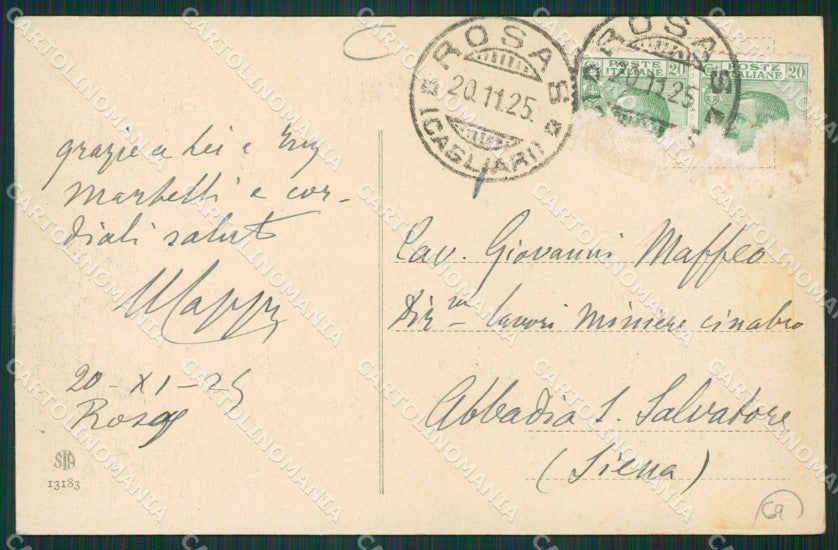 ROSAS
20.11.25.
(CAGLIARI)
ROSAS
20.11.25
POSTE ITALIANE 20
POSTE ITALIANE 20
grazie a Lei e Ing
Martelli e cor-
diali saluti
20-XI-25
Rosas
Cav. Giovanni Maffeo
Dirre lavori miniere cinabro
Abbadia S. Salvatore
(Siena)
STA
13183
CARTOLINOMANIA